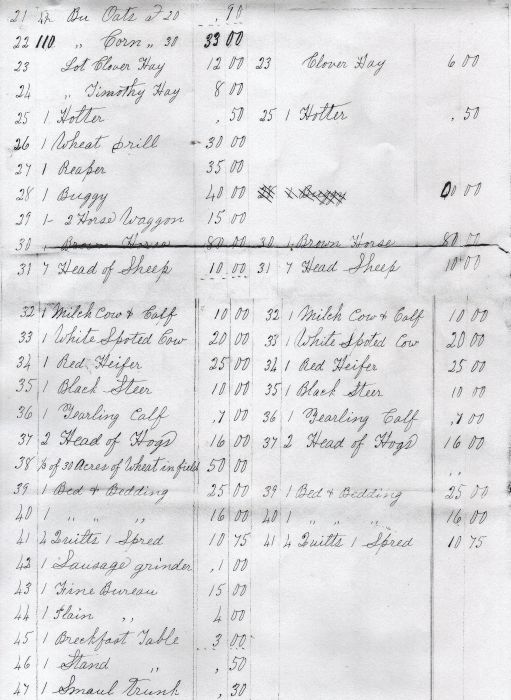 21 42 Bu Oats @ 20 .90
22 110 " Corn " 30 33 00
23 Lot Clover Hay 12 00 23 Clover Hay 6 00
24 " Timothy Hay 8 00
25 1 Holter .50 25 1 Holter .50
26 1 Wheat Drill 30 00
27 1 Reaper 35 00
28 1 Buggy 40 00 28 1 Buggy 00 00
29 1- 2 Horse Waggon 15 00
30 1 Brown Horse 80 00 30 1 Brown Horse 80 00
31 7 Head of Sheep 10 00 31 7 Head Sheep 10 00
32 1 Milch Cow & Calf 10 00 32 1 Milch Cow & Calf 10 00
33 1 White Spoted Cow 20 00 33 1 White Spoted Cow 20 00
34 1 Red Heifer 25 00 34 1 Red Heifer 25 00
35 1 Black Steer 10 00 35 1 Black Steer 10 00
36 1 Yearling Calf .7 00 36 1 Yearling Calf .7 00
37 2 Head of Hogs 16 00 37 2 Head of Hogs 16 00
38 of 30 Acres of Wheat in field 50 00
39 1 Bed & Bedding 25 00 39 1 Bed & Bedding 25 00
40 1 " " " 16 00 40 1 " " " 16 00
41 4 Quilts 1 Spred 10 75 41 4 Quilts 1 Spred 10 75
42 1 Sausage grinder .1 00
43 1 Fine Bureau 15 00
44 1 Plain " 4 00
45 1 Breckfast Table 3 00
46 1 Stand " .50
47 1 Smaul trunk .30